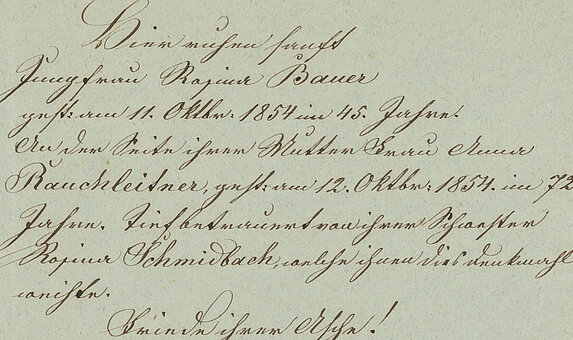 Hier ruhen sanft
Jungfrau Rosina Bauer
gest: am 11. Oktbr: 1854 im 45. Jahre.
An der Seite ihrer Mutter Frau Anna
Rauchleitner, gest: am 12. Oktbr: 1854. im 72
Jahre. Tief betrauert von ihrer Schwester
Rosina Schmidbach, welche ihnen dies denkmahl
weihte.
Friede ihrer Asche!